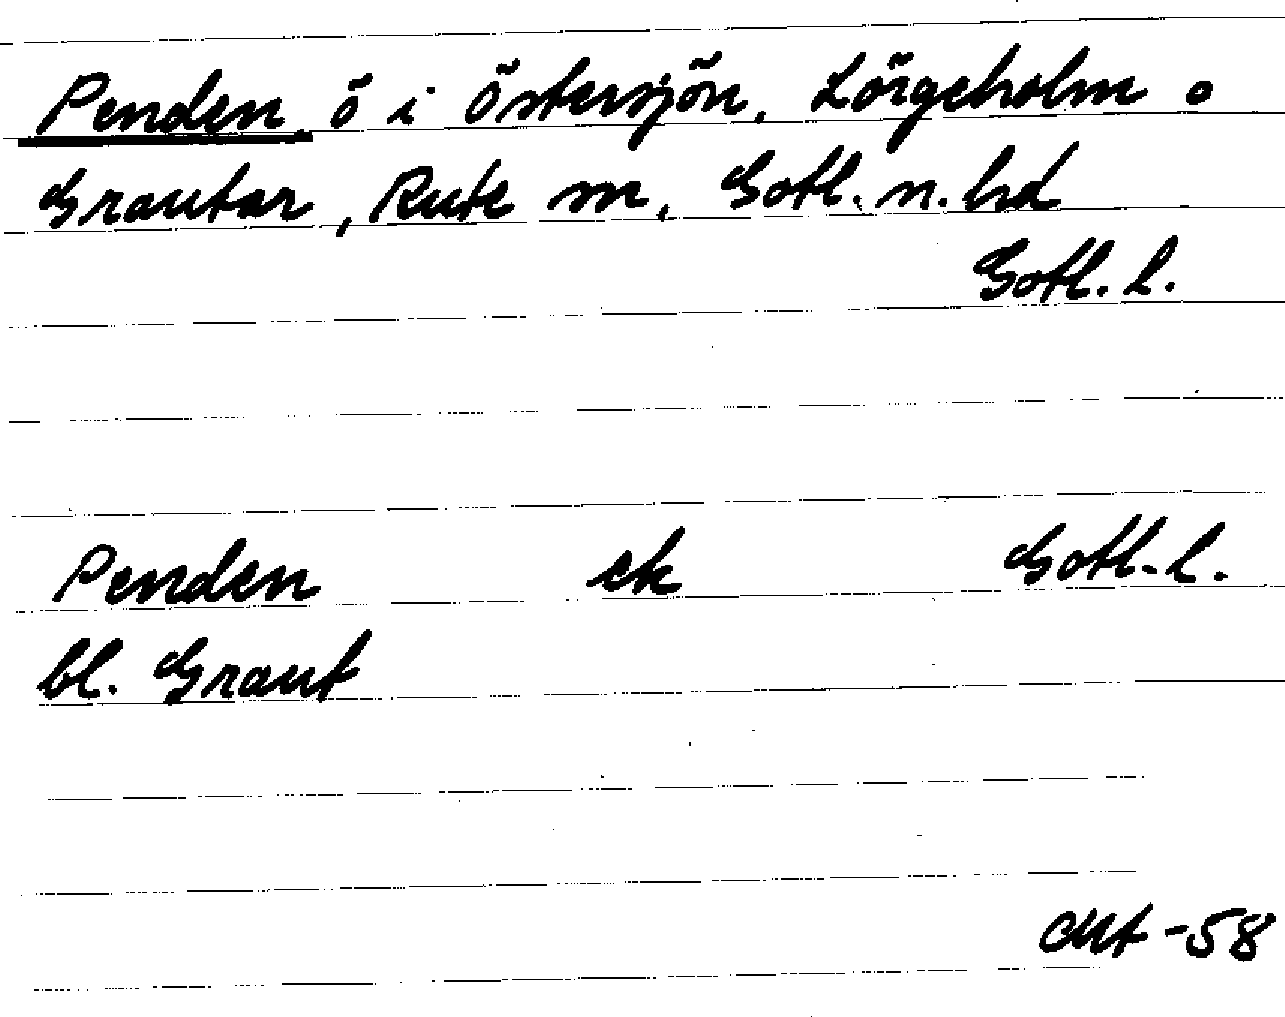 Penden, ö i Östersjön, Lörgeholm o
Grautar, Rute sn, Gotl. n. hd
Gotl. l.
Penden ek Gotl. l.
bl. Graut
okt -58